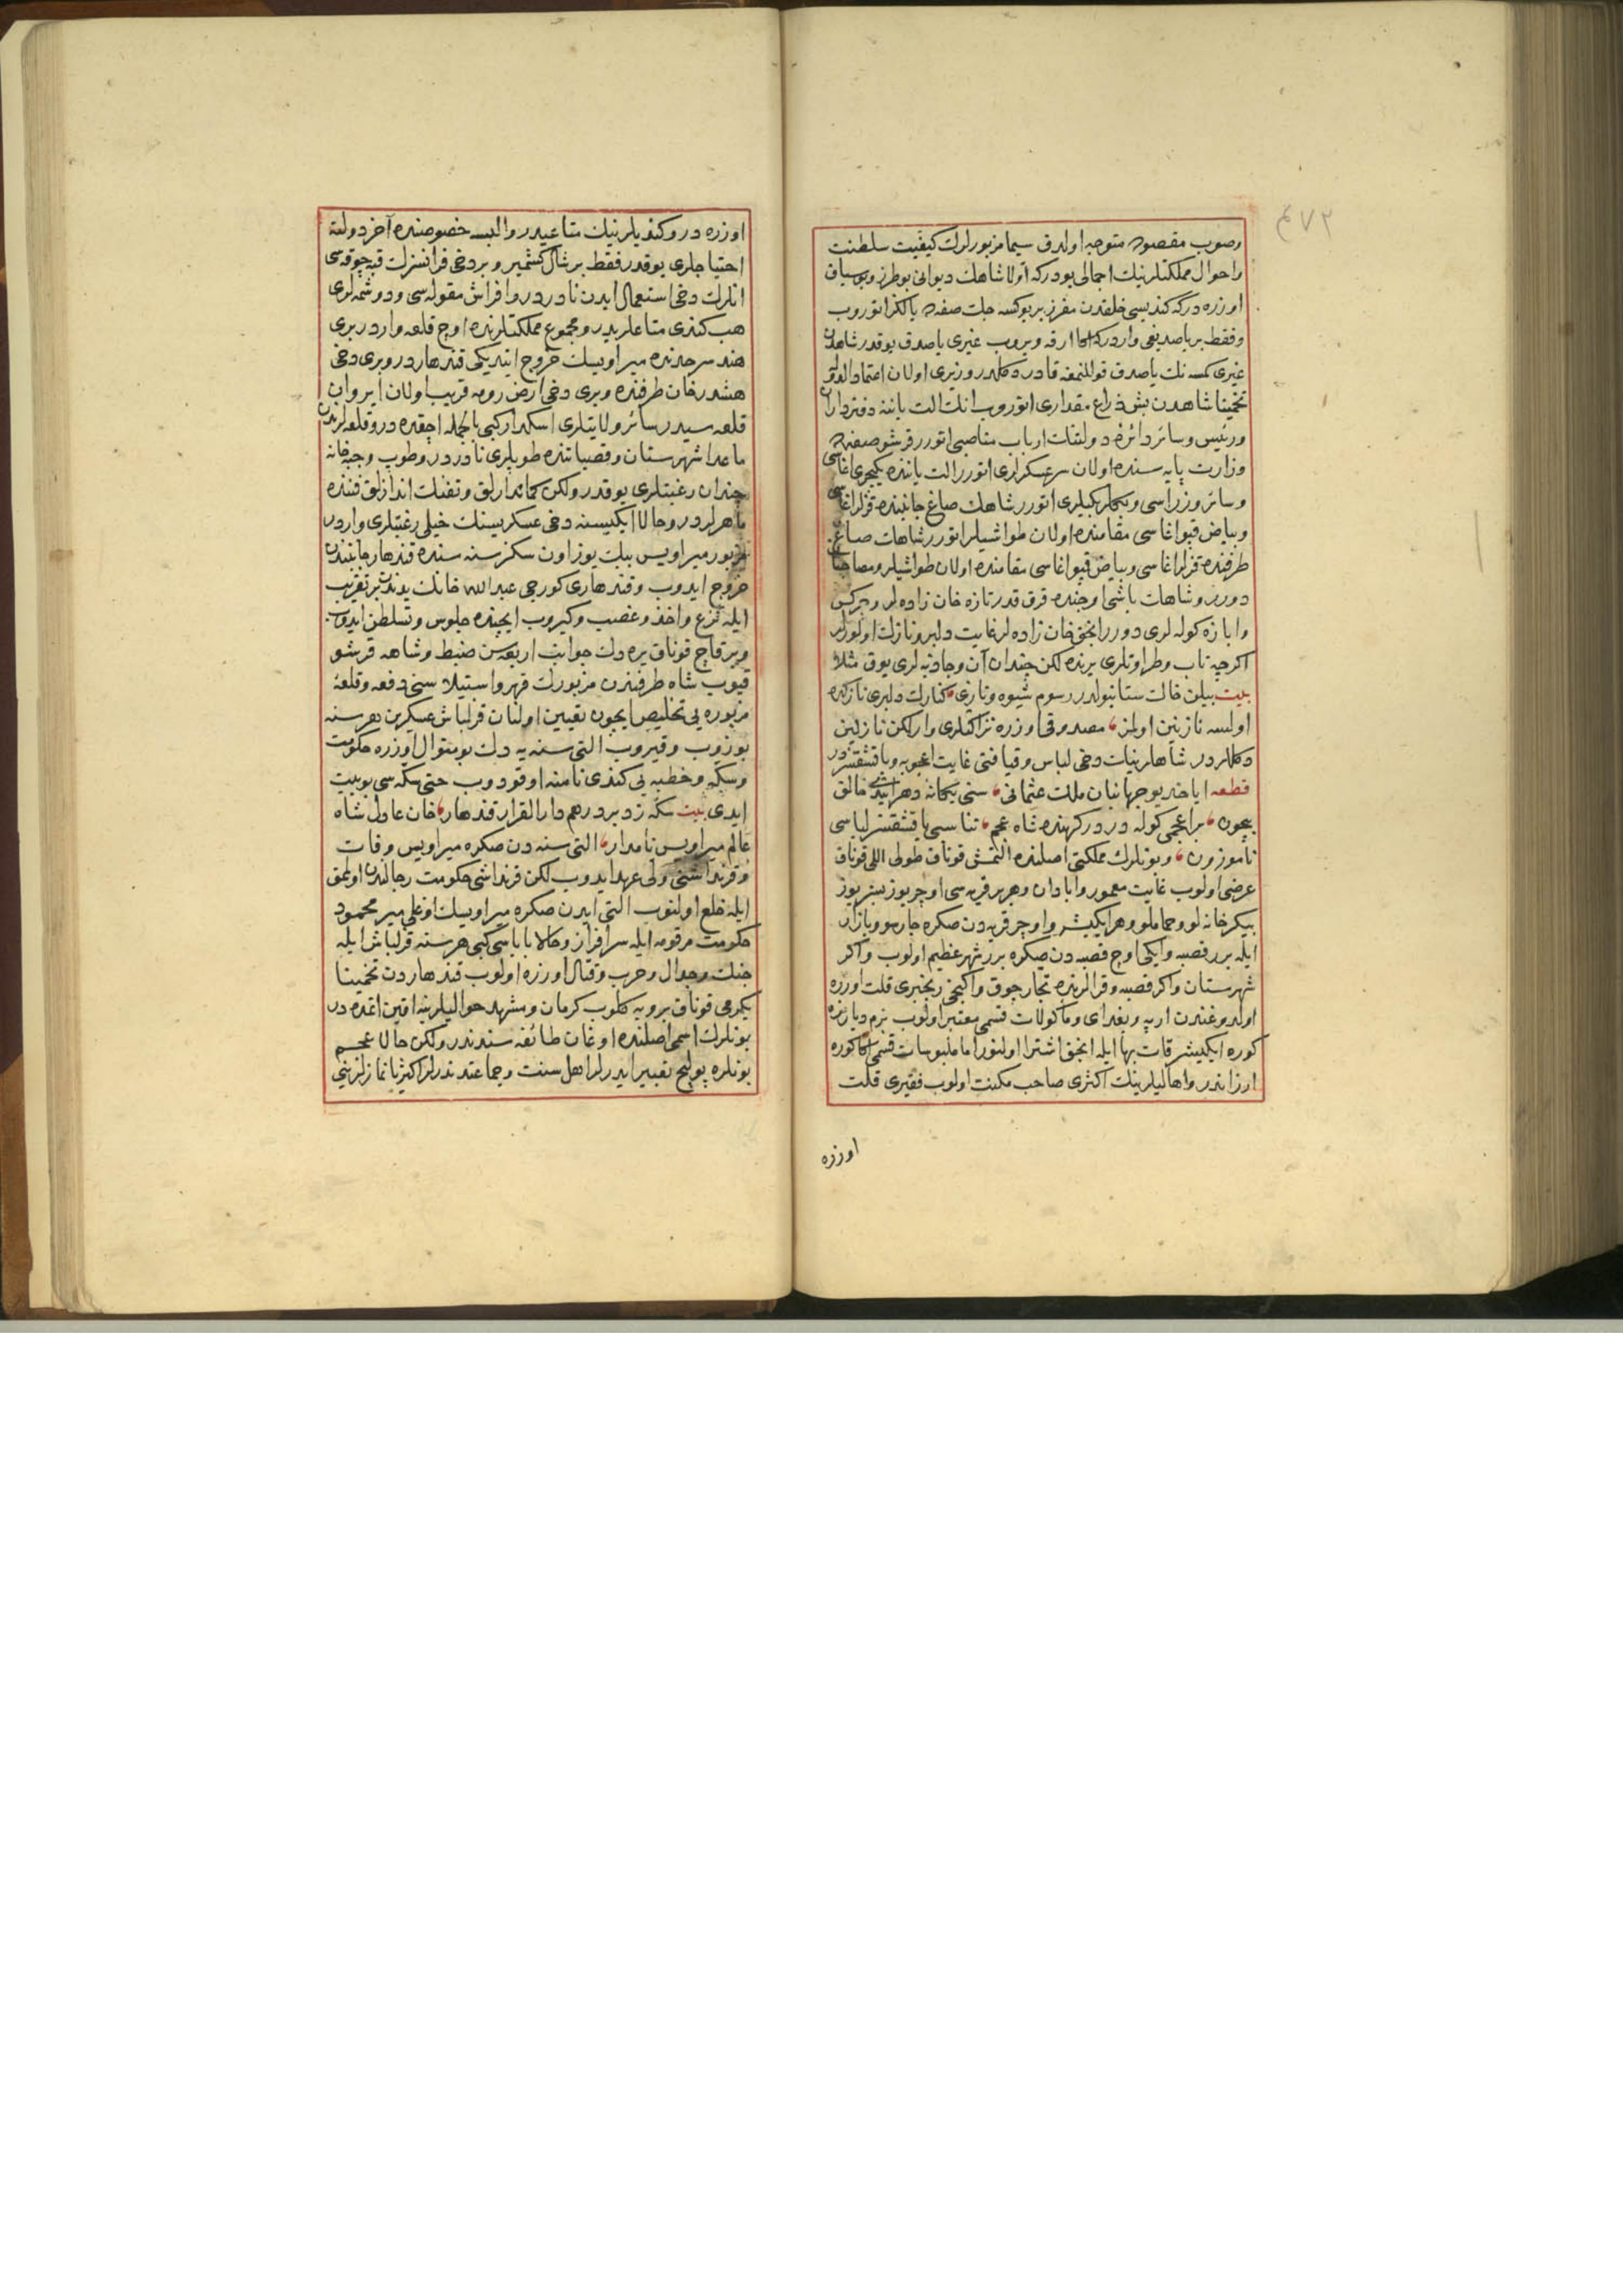 وصوب مقصوده متوجه اولدق سیما مزبورلرك كیفیت سلطنت
واحوال مملكتلرینك اجمالی بودركه اولا شاهك دیوانی بوطرز وبوسیاق
اوزره دركه كندیسی خلقدن مفرز بر یوكسجك صفه ده یالكز اتوروب
وفقط بر یاصدیغی واردركه اكا ارقه ویروب غیری یاصدق یوقدر شاهدن
غیری كسه نك یاصدق قوللنمغه قادر دكلدر وزیری اولان اعتماد الدوله
تخمینا شاهدن بش ذراع مقداری اتوروب انك الت یاننه دفترداران
ورئیس وسائر دائرهٔ دولتنك ارباب مناصبی اتورر قرشو صفه ده
وزارت پایه سنده اولان سرعسكرلری اتورر الت یاننده یكیچری اغاسی
وسائر وزراسی وبكلربكیلری اتورر شاهك صاغ جانبنده قزلر اغاسی
وبیاض قپو اغاسی مقامنده اولان طواشیلر اتورر شاهك صاغ
طرفنده قزلر اغاسی وبیاض قپو اغاسی مقامنده اولان طواشیلر ومصاحبلر
دورر وشاهك باشی اوجنده قرق قدر تازه خان زاده لر وچركس
وابازه كوله لری دورر انجق خان زاده لر غایت دلبر ونازك اولورلر
اكرچه تاب وطراوتلری یرنده لكن چندان آن وجاذبه لری یوق مثلا
بیت بیلن خالت ستانبولدر رسوم شیوه ونازی كنارك دلبری نازكده
اولسه نازنین اولمز مصدوقی اوزره نزاكتلری وار لكن نازنین
دكللردر شاهلرینك دخی لباس وقیافتی غایت اعجوبه ویاقشقسزدر
قطعه ایا خدیو جهانبان ملك عثمانی سنی یكانهٔ دهر ایتدی خالق
بیچون بر اعجمی كوله در دركهنده شاه عجم تناسبی یاقشقسز لباسی
ناموزون وبونلرك مملكتی اصلنده التمش قوناق طولی اللی قوناق
عرضی اولوب غایت معمور وابادان وهر بر قریه سی اوچر یوز بشر یوز
بیكر خانه لو وحماملو وهر ایكیشر واوچر قریه دن صكره چارسو وبازار
ایله برر قصبه وایكی اوچ قصبه دن صكره برر شهر عظیم اولوب واكر
شهرستان واكر قصبه وقرالرنده تجار چوق واكینجی رنجبری قلت اوزره
اولدوغندن ارپه وبغدای وماكولات قسمی معتبر اولوب بزم دیاره
كوره ایكیشر قات بها ایله انجق اشترا اولنور اما ملبوسات قسمی اكا كوره
ارزاندر واهالیلرینك اكثری صاحب مكنت اولوب فقیری قلت
اوزره
اوزره در وكندیلرینك متاعیدر والبسه خصوصنده آخر دولته
احتیاجلری یوقدر فقط بر شال كشمیر وبر دخی فرانسزك قبه چوقه سی
انلرك دخی استعمال ایدن نادردر وافراش مقوله سی ودوشمه لری
هب كندی متاعلریدر ومجموع مملكتلرنده اوچ قلعه واردر بری
هند سرحدنده میر اویسك خروج ایتدیكی قندهاردر وبری دخی
هشدرخان طرفنده وبری دخی ارض رومه قریب اولان ایروان
قلعه سیدر سائر ولایتلری اسكدار كبی بالجمله اچقده در وقلعه لرندن
ماعدا شهرستان وقصباتنده طوپلری نادردر وطوپ وجبه خانه
چندان رغبتلری یوقدر ولكن كماندارلق وتفنك اندازلق فننده
ماهرلردر وحالا ایكیسنه دخی عسكریسنك خیلی رغبتلری واردر
مزبور میر اویس بیك یوز اون سكز سنه سنده قندهار جانبندن
خروج ایدوب وقندهاری كورجی عبد الله خانك یدندن بر تقریب
ایله نزع واخذ وغصب وكیروب ایچنده جلوس وتسلطن ایدوب
وبر قاچ قوناق یره دك جوانب اربعه سن ضبط وشاهه قرشو
قیوب شاه طرفندن مزبورك قهر واستیلاسنی دفعه وقلعهٔ
مزبوره یی تخلیص ایچون تعیین اولنان قزلباش عسكرین هر سنه
بوزوب وقیروب التی سنه یه دك بو منوال اوزره حكومت
وسكه وخطبه یی كندی نامنه اوقودوب حتی سكه سی بو بیت
ایدی بیت سكه زد بر درهم دار القرار قندهار خان عادل شاه
عالم میر اویس نامدار التی سنه دن صكره میر اویس وفات
وقرنداشنی ولی عهد ایدوب لكن قرنداشی حكومت رجالندن اولمق
ایله خلع اولنوب التی ایدن صكره میر اویسك اوغلی میر محمود
حكومت مرقومه ایله سرافراز وحالا باباسی كبی هر سنه قزلباش ایله
جنك وجدال وحرب وقتال اوزره اولوب قندهاردن تخمینا
یكرمی قوناق برویه كلوب كرمان ومشهد حوالیلرینه اقین اتمده در
بونلرك اسمی اصلنده اوغان طائفه سندندر ولكن حالا عجم
بونلره بولیج تعبیر ایدرلر اهل سنت وجماعتدندرلر اكثریا نمازلرینی